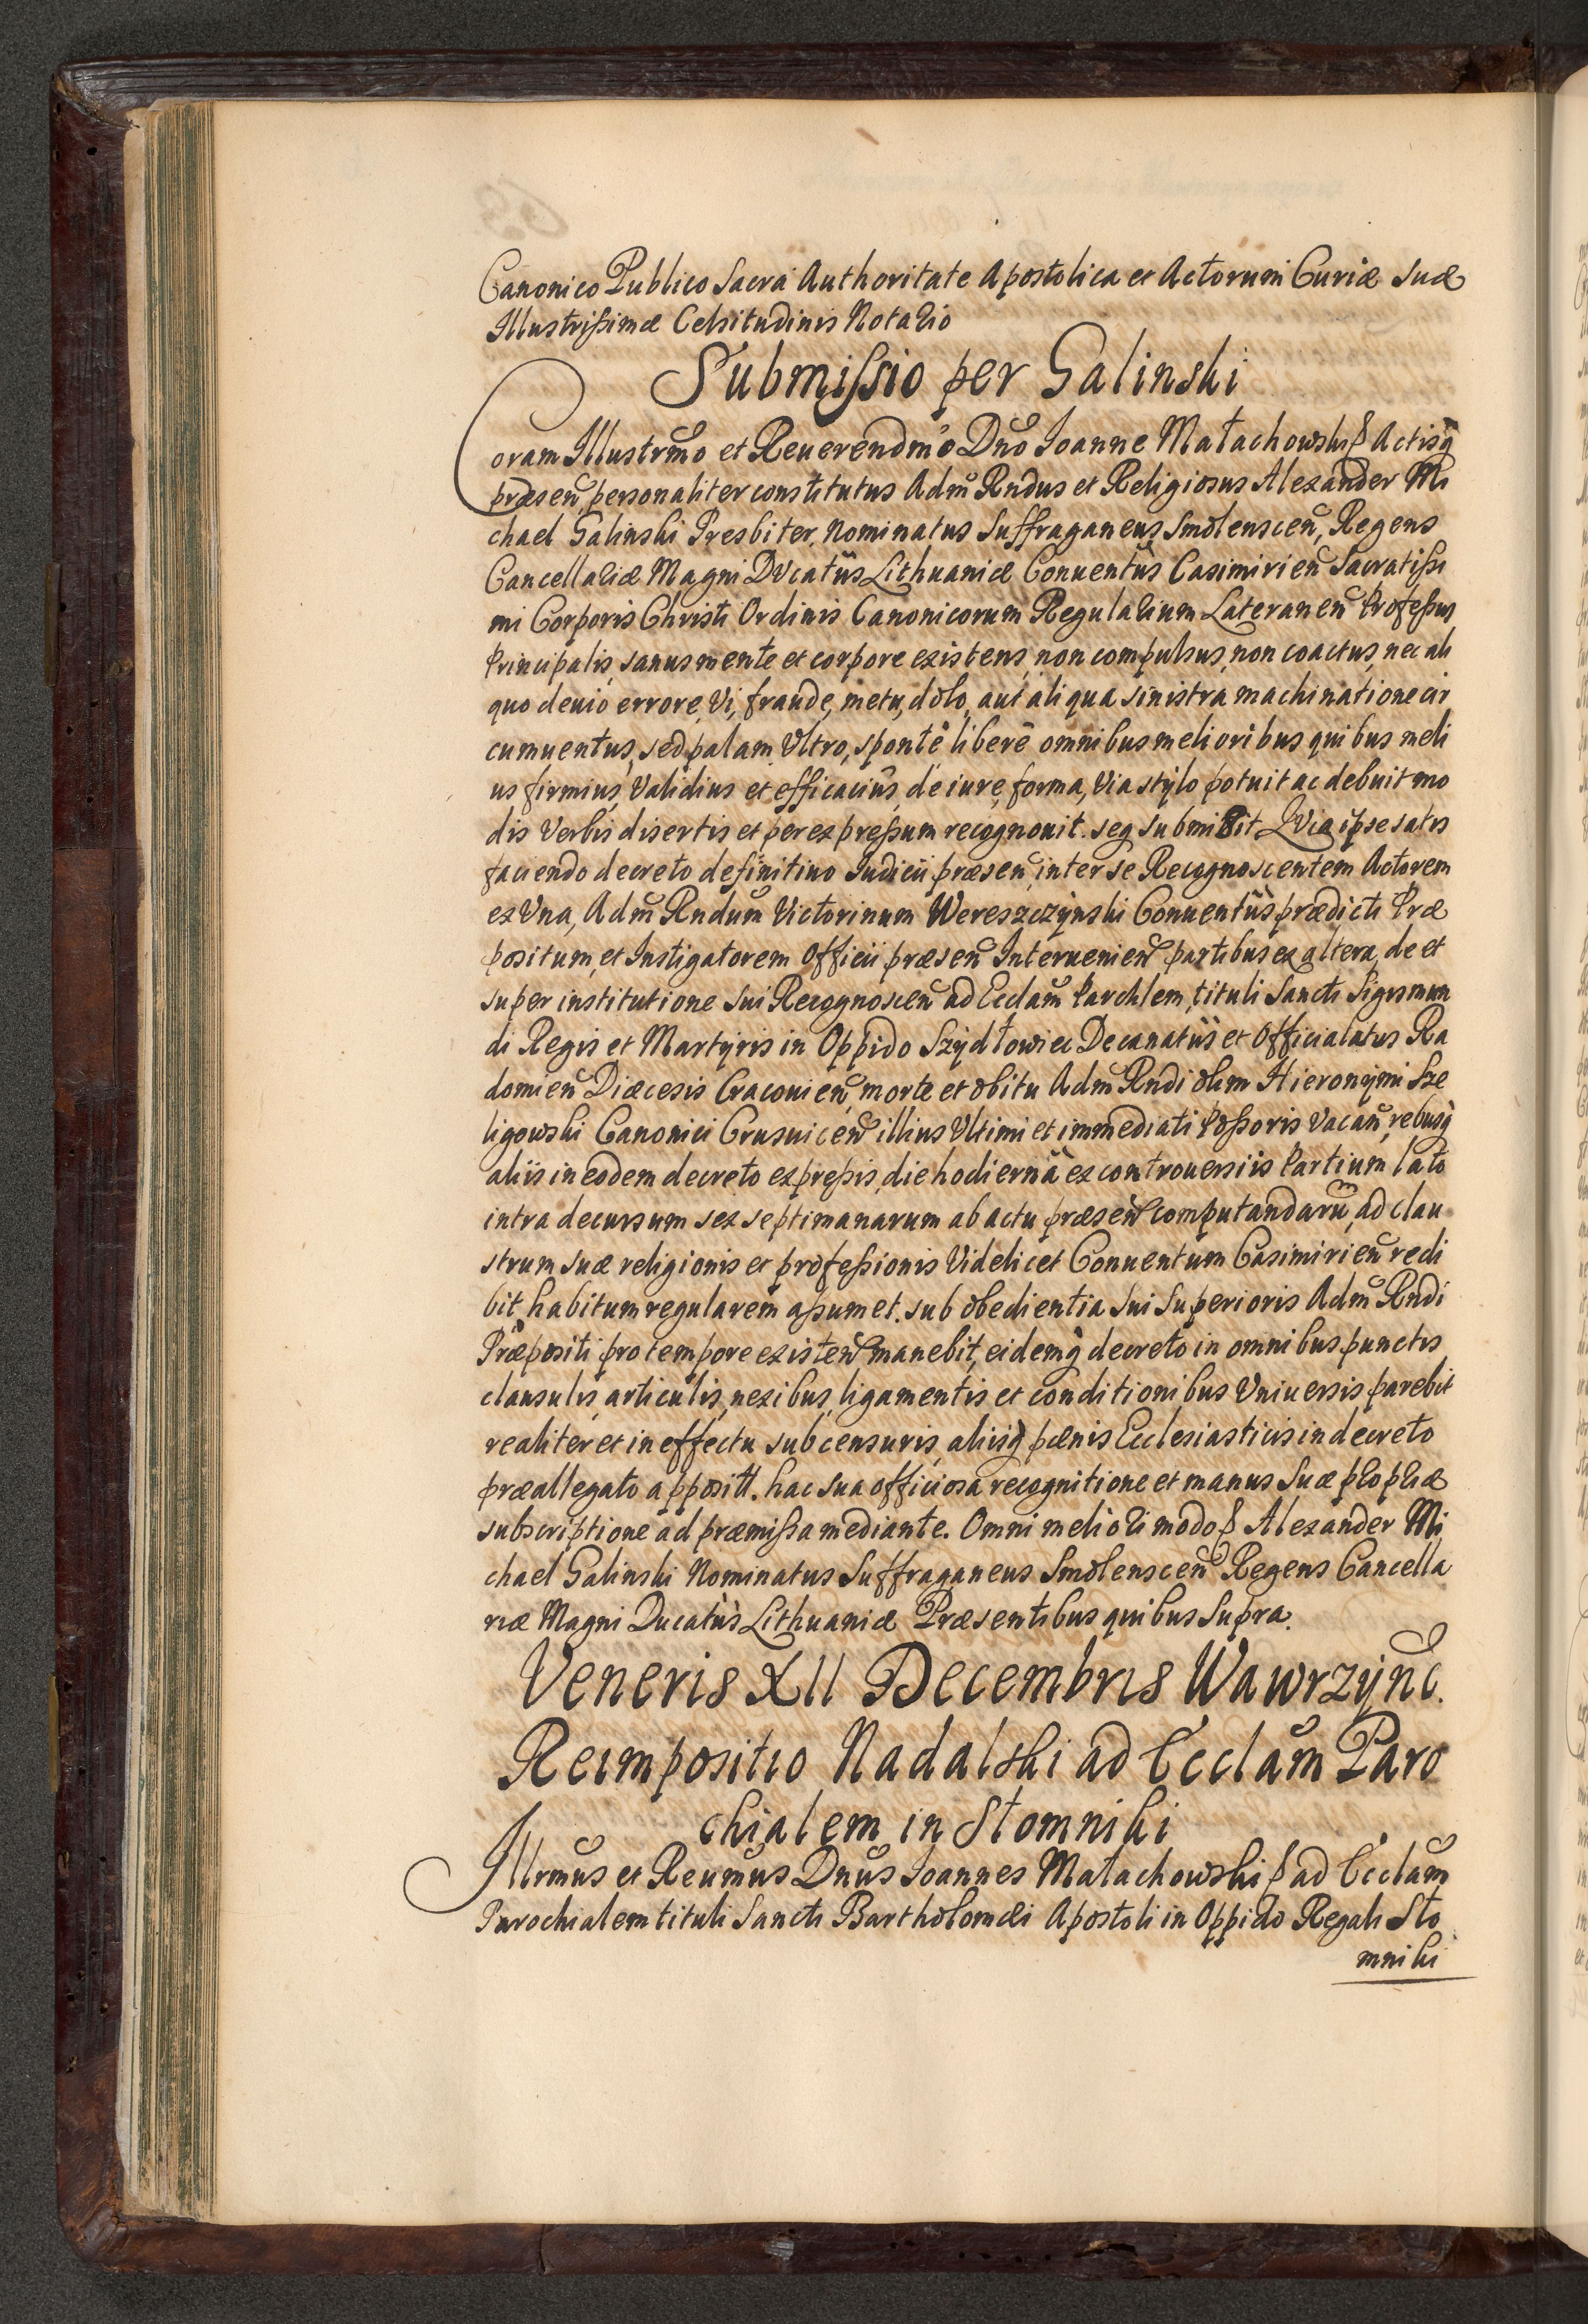 Canonico Publico Sacra Authoritate Apostolica et Actorum Curiæ Suæ
Illustrißimæ Celsitudinis Notario
Submissio per Galinski
Coram Illustrm̃o et Reuerendm̃o Dño Ioanne Małachowski Actisq̃
præseñ personaliter constitutus Adm̃ Rndus et Religiosus Alexander Mi
chael Galinski Presbiter, Nominatus Suffraganeus Smolensceñ, Regens
Cancellariæ Magni Ducatûs Lithuaniæ Conuentûs Casimirieñ Sacratißi
mi Corporis Christi Ordinis Canonicorum Regularium Lateraneñ Profeßus
Principalis, sanus mente et corpore existens, non compulsus, non coactus, nec ali
quo deuio errore, Vi, fraude, metu, dolo, aut aliqua sinistra machinatione cir
cumuentus, sed palam, Vltro, sponte libere omnibus melioribus quibus meli
us firmius, Validius et efficacius, de iure, forma, Via stylo potuit ac debuit mo
dis Verbis disertis et per expreßum recognouit. seq submisit Quia ipse satis
faciendo decreto definitiuo Iudicii præseñ, inter se Recognoscentem Actorem
ex Vna, Adm̃ Rndum Victorinum Wereszczynski Conuentûs prædicti Præ
positum, et Instigatorem Officii præseñ Interuenieñ partibus ex altera, de et
super institutione sui Recognosceñ ad Ecclam̃ Parchlem, tituli Sancti Sigismun
di Regis et Martyris in Oppido Szydłowiec Decanatûs et Officialatus Ra
domieñ Diæcesis Cracouieñ, morte et obitu Adm̃ Rndi olim Hieronymi Sze
ligowski Canonici Crusuiceñ illius Vltimi et immediati Poßoris Vacañ, rebusq̃
aliis in eodem decreto expreßis, die hodierna ex controuersiis Partium lato
intra decursum sex septimanarum ab actu præseñ computandarũ, ad clau
strum suæ religionis et profeßionis Videlicet Conuentum Casimirieñ redi
bit, habitum regularem aßumet. sub obedientia sui Superioris Adm̃ Rndi
Præpositi pro tempore existeñ manebit, eidemq̃ decreto in omnibus punctis
clausulis, articulis, nexibus, ligamentis et conditionibus Vniuersis, parebit
realiter et in effectu sub censuris, aliisq̃ pænis Ecclesiasticis in decreto
præallegato apposit̃t. hac sua officiosa recognitione et manus suæ propriæ
subscriptione ad præmißa mediante. Omni meliori modo Alexander Mi
chael Galinski Nominatus Suffraganeus Smolensceñ Regens Cancella
riæ Magni Ducatûs Lithuaniæ Præsentibus quibus Supra.
Veneris XII Decembris Wawrzync̃.
Reimpositio Nadalski ad Ecclam̃ Paro
chialem in Słomniki
Illrmũs et Reumũs Dnũs Ioannes Małachowski ad Ecclam̃
Parochialem tituli Sancti Bartholomæi Apostoli in Oppido Regali Sło
mniki